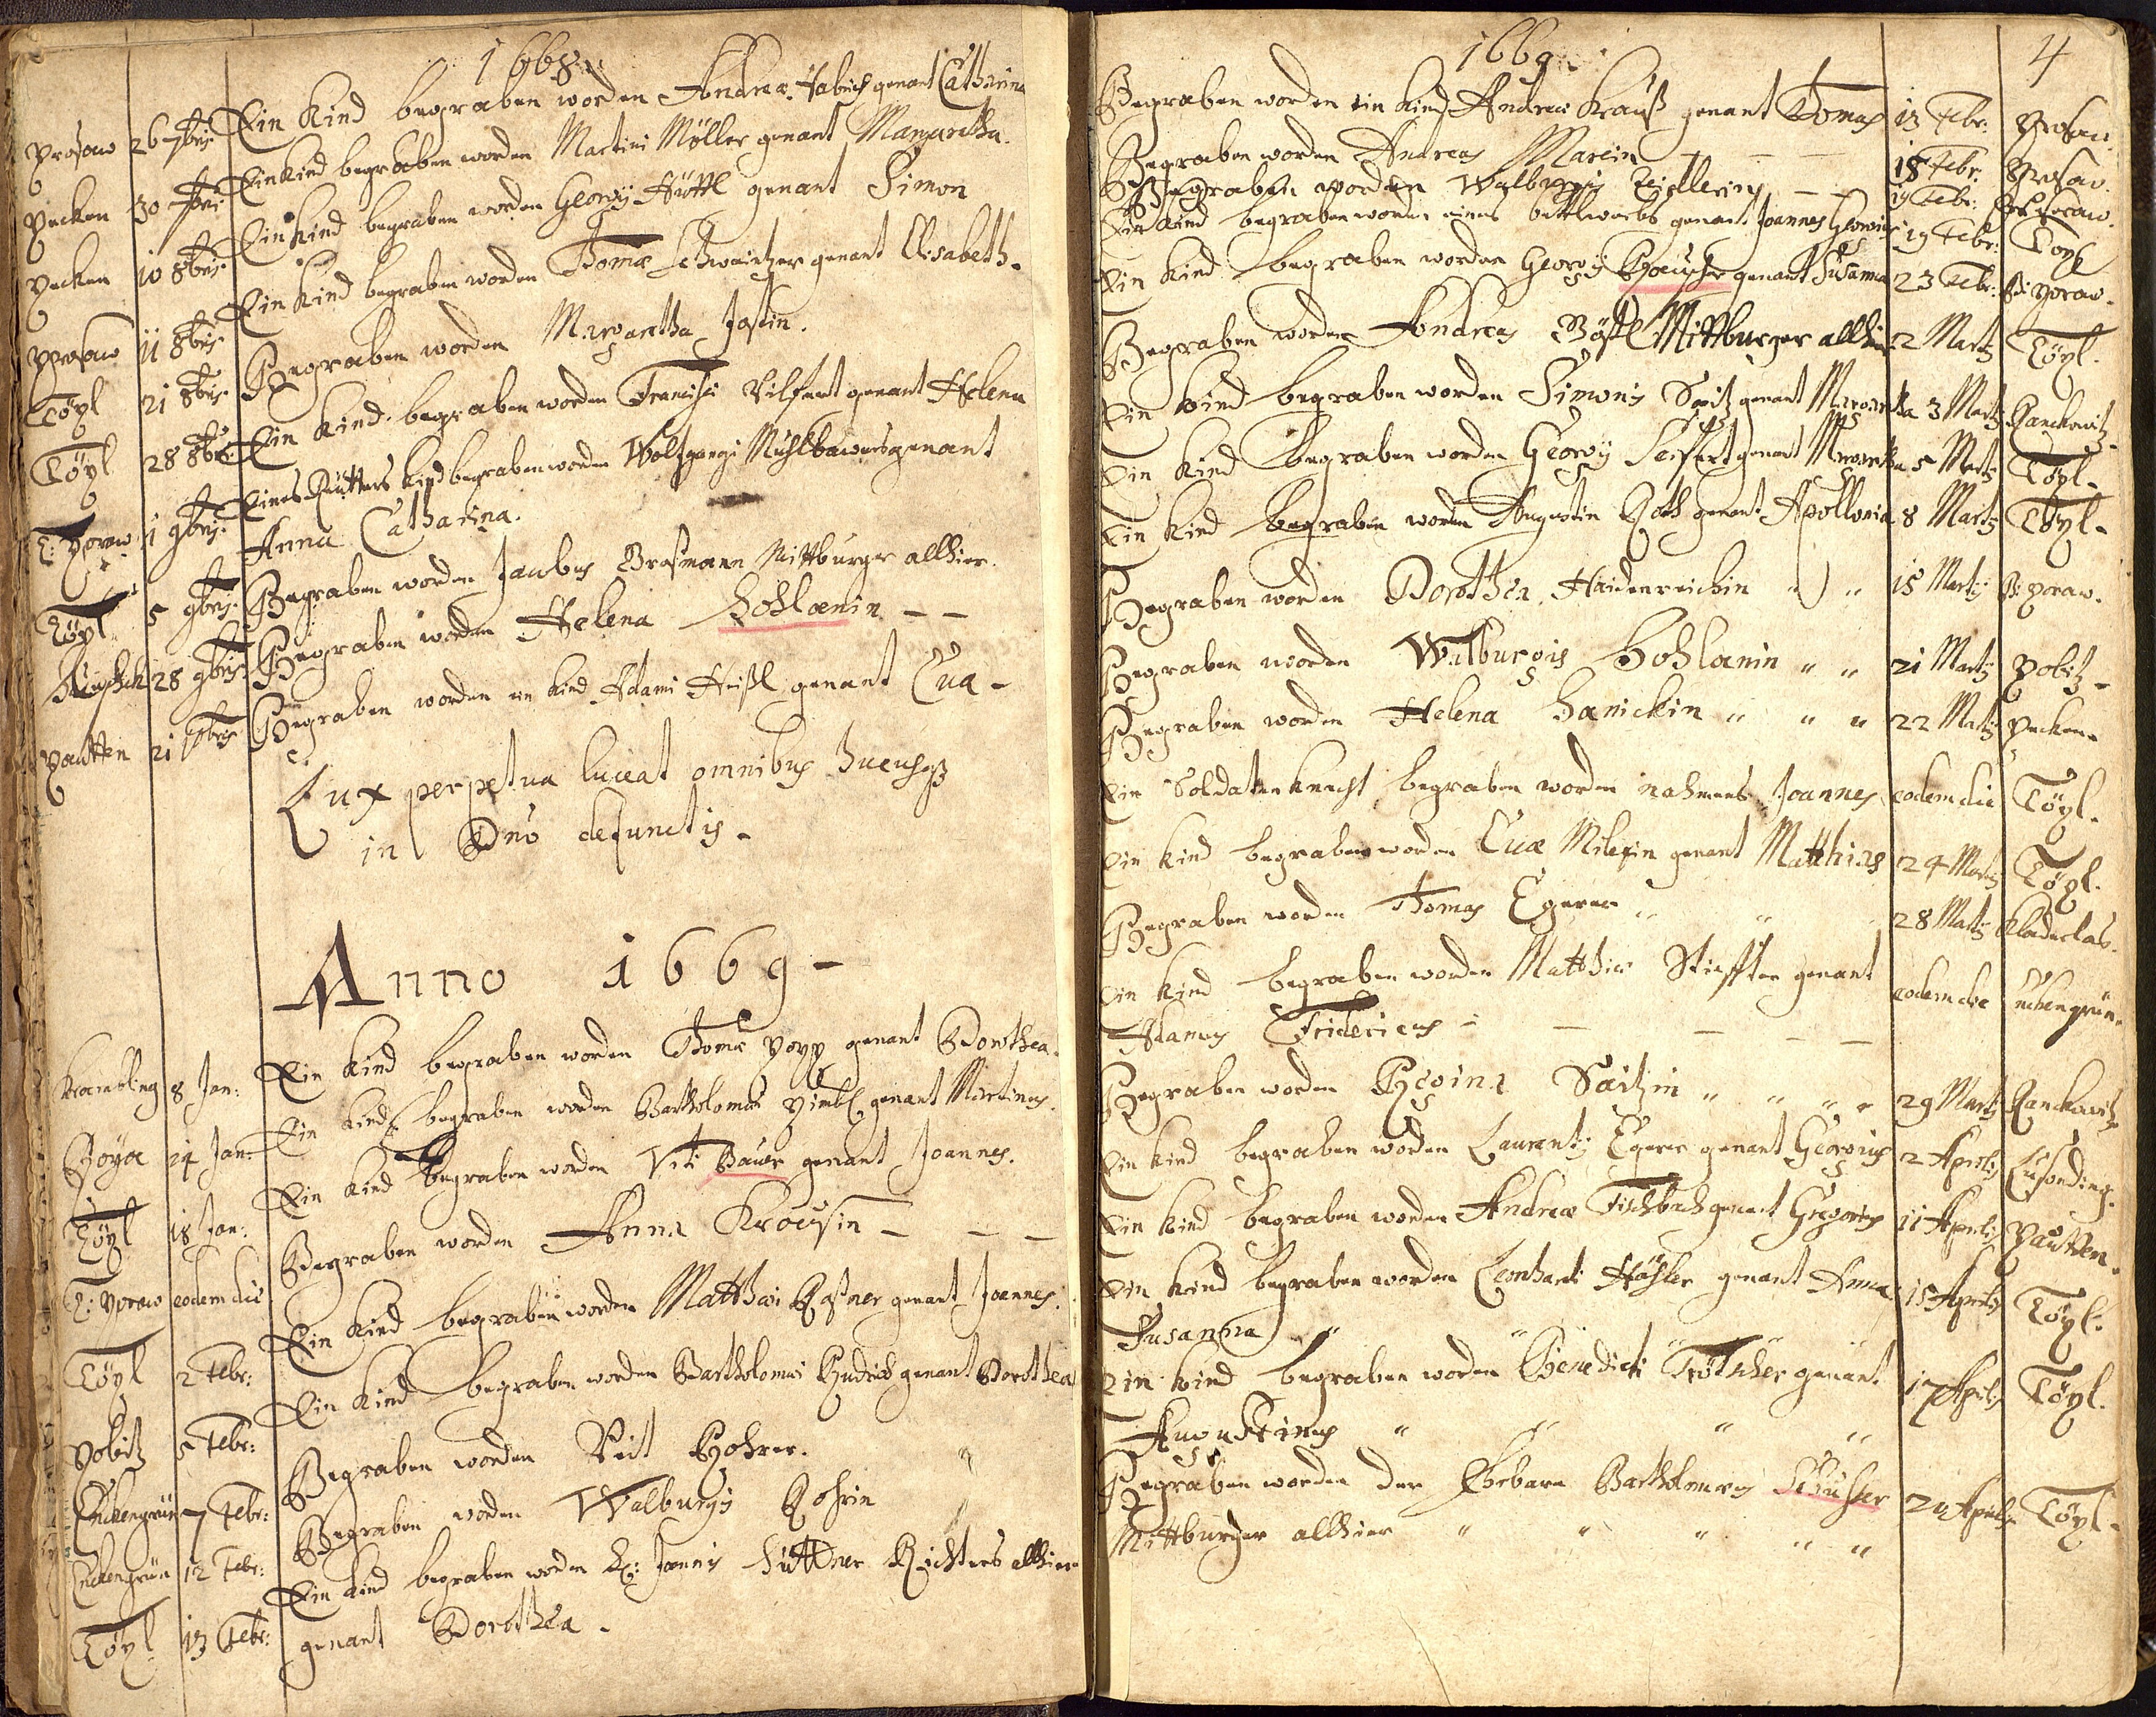 1668
Prosaw 26 7bris Ein Kind begraben worden Andreæ Habich genant Catharina
Pecken 30 7bris Ein Kind begraben worden Martini Möller genant Margaretha.
Pecken 10 8bris Ein Kind begraben worden Georgij Hüttl genant Simon
Prosaw 11 8bris Ein Kind begraben worden Thomæ Schwartzer genant Elisabeth.
Töpl 21 8bris Begraben worden Margaretha Jastin.
Töpl 28 8bris Ein Kind begraben worden Francisci Vilfert genant Helena
T: Poraw 1 9bris Eines Reütters Kind begraben worden Wolfgangi Mühlbawers genant
Anna Catharina.
Töpl 5 9bris Begraben worden Jacobus Grasmann Mittburger allhier.
28 9bris Begraben worden Helena Hohlænin - -
Pautten 21 Xbris Begraben worden ein Kind Adami Heißl genant Eua -
Lux perpetua luceat omnibus hucusq
in Dno defunctis -
Anno 1669 -
Krambling 8 Jan: Ein Kind begraben worden Thomæ Popp genant Dorothea.
14 Jan: Ein Kind begraben worden Bartholomæi Pimbl genant Martinus.
Töpl 18 Jan: Ein Kind begraben worden Viti Bauer genant Joannes.
T: Poraw eodem die Begraben worden Anna Krausin - - -
Töpl 2 Febr: Ein Kind begraben worden Matthæi Raßner genant Joannes.
Pobitz 5 Febr: Ein Kind begraben worden Bartholomæi Rudrich genant Dorothea
Enkengrün 7 Febr: Begraben worden Veit Rohrer.
Enkengrün 12 Febr: Begraben worden Walburgis Rohrin
Töpl 13 Febr: Ein Kind begraben worden H: Joannis Hüttner Richters allhier
genant Dorothea.
1669
4
Begraben worden ein Kind Andreæ Krauß genant Thomas 13 Febr: Prosau
Begraben worden Andreas Marcin - - - 18 Febr. Prosau.
Begraben worden Walburgis Zeidlerin - - 19 Febr:
Ein Kind begraben worden eines bettlweibs genant Joannes Georgius 19 Febr: Töpl
Ein Kind begraben worden Georgij Rauscher genant Susanna 23 Febr: Poraw.
Begraben worden Andreas Göstl Mittburger allhier 2 Martij Töpl.
Ein Kind begraben worden Simonis Saitz genant Margaretha 3 Martij Ranckowitz
Ein Kind begraben worden Georgij Seifert genant Margaretha 5 Martij Töpl.
Ein Kind begraben worden Augustin Roth genant Apollonia 8 Martij Töpl.
Begraben worden Dorothea Haidenreichin " " 15 Martij Poraw.
Begraben worden Walburgis Hohlanin " " 21 Martij Pobitz
Begraben worden Helena Hanickin " " " 22 Martij Pecken.
Ein Soldaten Knecht begraben worden nahmens Joannes eodem die Töpl.
Ein Kind begraben worden Euæ Milesin genant Matthias 24 Martij Töpl.
Begraben worden Thomas Egerer " " 28 Martij Kladerlas.
Ein Kind begraben worden Matthiæ Stieffter genant eodem die Enkengrün.
Adamus Fridericus - - - - -
Begraben worden Regina Saitzin " " " " 29 Martij Ranckowitz
Ein Kind begraben worden Laurentij Egerer genant Georgius 2 Aprilis Lusading.
Ein Kind begraben worden Andreæ Fischbach genant Gregorius 11 Aprilis Pautten.
Ein Kind begraben worden Leonhardi Häßler genant Anna 15 Aprilis Töpl.
Susanna " " "
Ein Kind begraben worden Benedicti Trötscher genant 17 Aprilis Töpl.
Augustinus " " " "
Begraben worden der Ehrbare Bartholomæus Schuster 24 Aprilis Töpl.
Mittburger allhier " " " " "